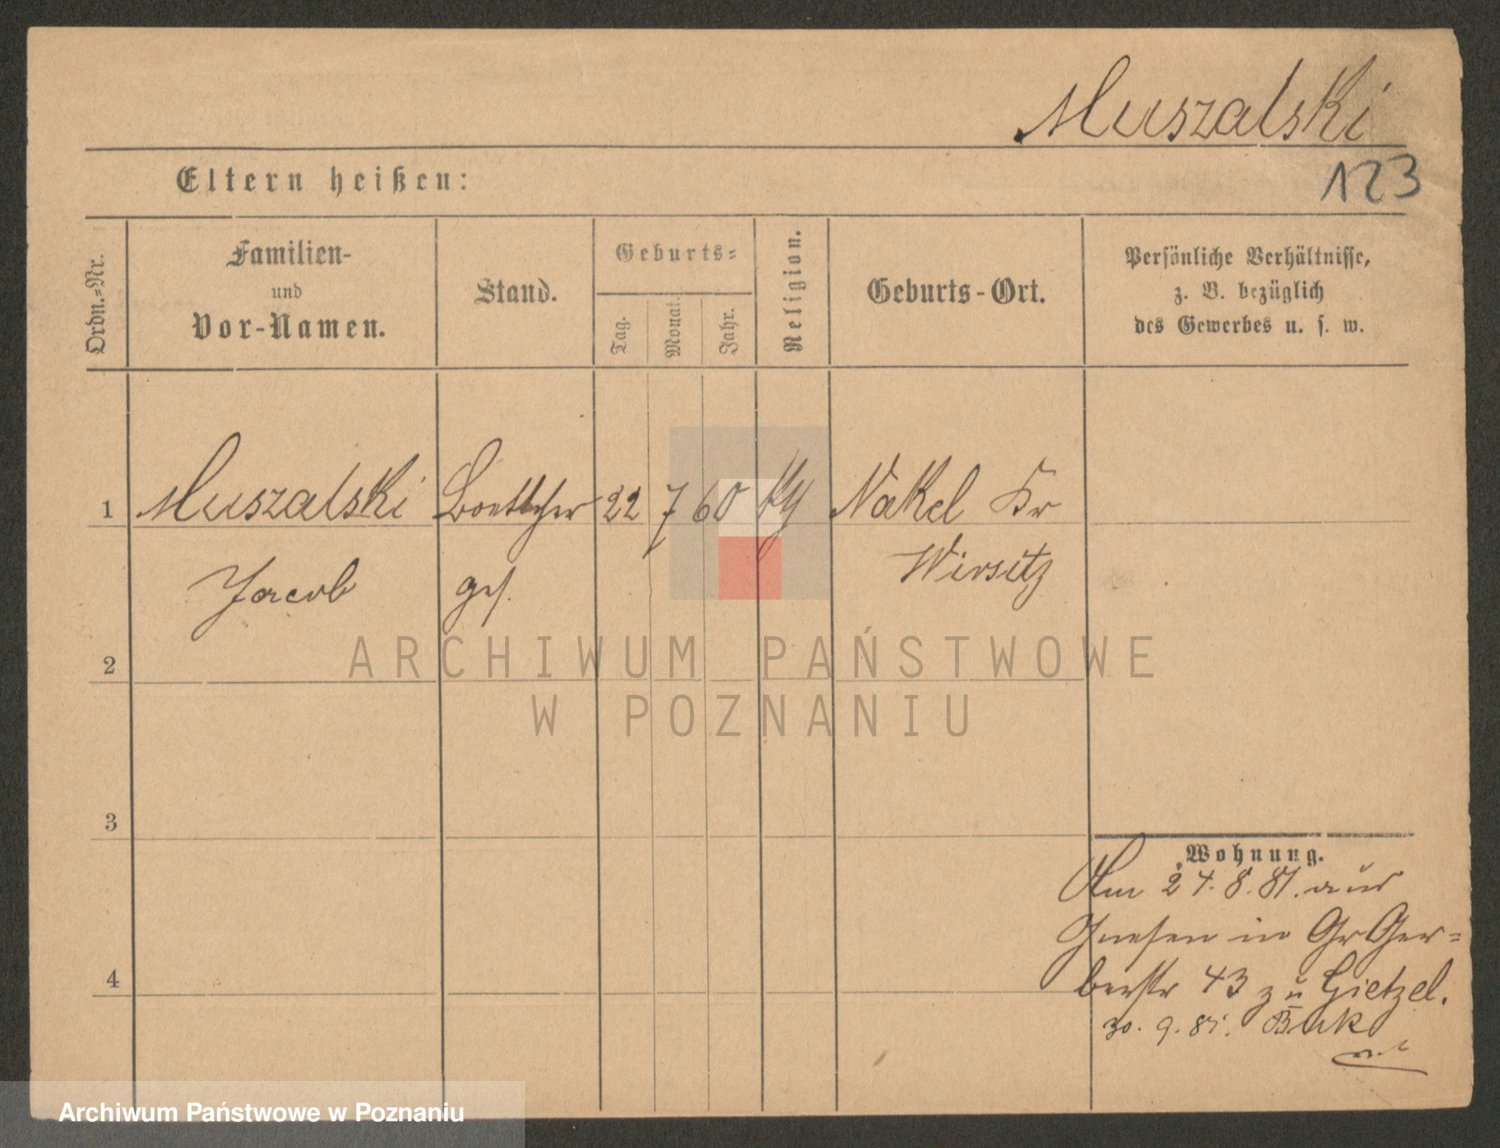 Muszalski
Eltern heißen:
123
Ordn.-Nr.
Familien-
und
Vor-Namen.
Stand.
Geburts-
Tag.
Monat.
Jahr.
Religion.
Geburts-Ort.
Persönliche Verhältnisse,
z. B. bezüglich
des Gewerbes u. s. w.
1 Muszalski Boettcher 22 7 60 Nakel Kr
Jacob ges. Wirsitz
2
3
4
Wohnung.
Am 24. 8. 81. aus
Gnesen in Gr Ger-
berstr 43 zu Gietzel.
30. 9. 81. Buk
ARCHIWUM PAŃSTWOWE
W POZNANIU
Archiwum Państwowe w Poznaniu